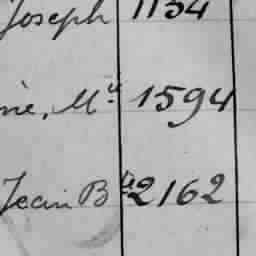 Joseph 1154
ne, Mie 1594
Jean Bte 2162